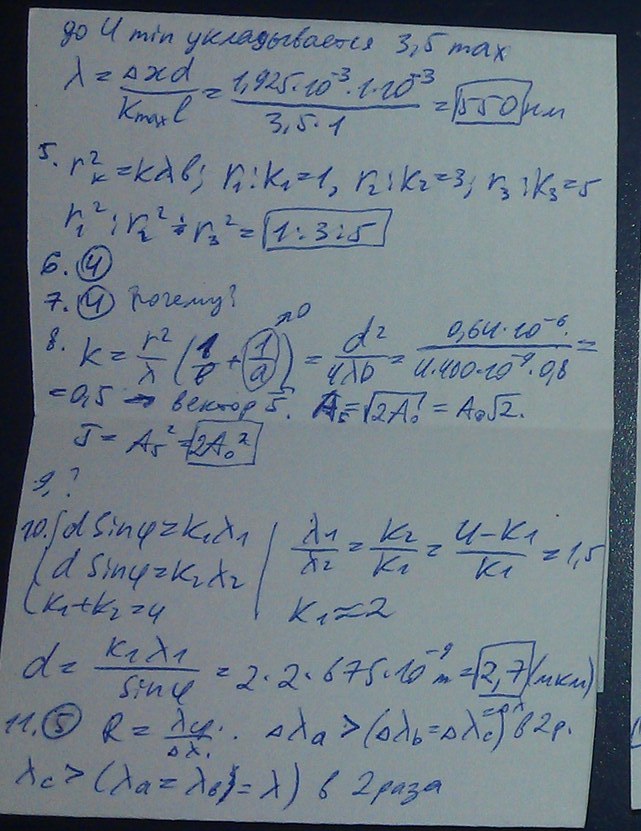 до 4 min укладывается 3,5 max
λ = Δxd / Kmax l = 1,925·10⁻³·1·10⁻³ / 3,5·1 = 550 нм
5. r²к = kλb; r₁:K₁=1, r₂:K₂=3; r₃:K₃=5
r₁² : r₂² : r₃² = 1:3:5
6. 4
7. 4 Почему?
8. k = r²/λ (1/b + 1/a) →0 = d²/4λb = 0,64·10⁻⁶ / 4·400·10⁻⁹·0,8 =
= 0,5 → вектор 5. A₅ = √2A₀ = A₀√2.
J = A₅² = 2A₀²
9. ?
10. { d sinφ = k₁λ₁ | λ₁/λ₂ = K₂/K₁ = 4-K₁/K₁ = 1,5
d sinφ = k₂λ₂
k₁+k₂=4 K₁≈2
d = k₁λ₁ / sinφ = 2·2·675·10⁻⁹ m = 2,7 (мкм)
11. 5 R = λφ/Δλ. Δλa > (Δλb = Δλc) в 2р.
λc > (λa = λb) = λ) в 2 раза